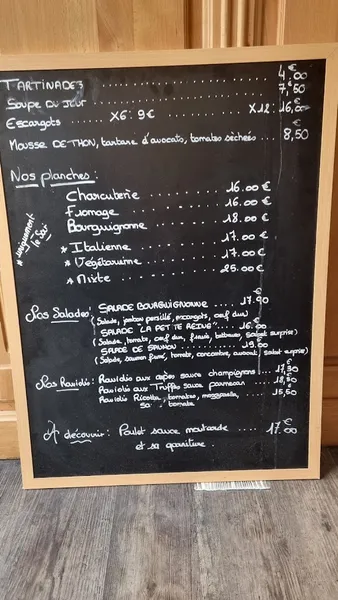 TARTINADES ........ 4.00€
SOUPE DU JOUR ........ 7,50
Escargots X6: 9€ X12: 16,00€
Mousse DE THON, tartare d'avocats, tomates séchées ... 8,50€
Nos planches:
Charcuterie ........ 16.00€
Fromage ........ 16.00€
Bourguignonne ........ 18.00€
* Italienne ........ 17.00€
* Végétarienne ........ 17.00€
* Mixte ........ 25.00€
* uniquement le soir
Nos Salades: SALADE BOURGUIGNONNE ..... 17.90€
(Salade, jambon persillé, escargots, oeuf dur)
SALADE "LA PETITE REINE" ... 16.00€
(Salade, tomate, oeuf dur, salade surprise)
SALADE DE SAUMON ..... 19.00€
(Salade, saumon fumé, tomate, concombre, avocat, salade surprise)
Nos Raviolis: Raviolis aux cèpes sauce champignons ... 17,90€
Raviolis aux Truffes sauce parmesan ... 18,50€
Raviolis Ricotta, tomates, mozzarella, ... 15,50€
tomate
À découvrir: Poulet sauce moutarde .... 17.00€
et sa garniture